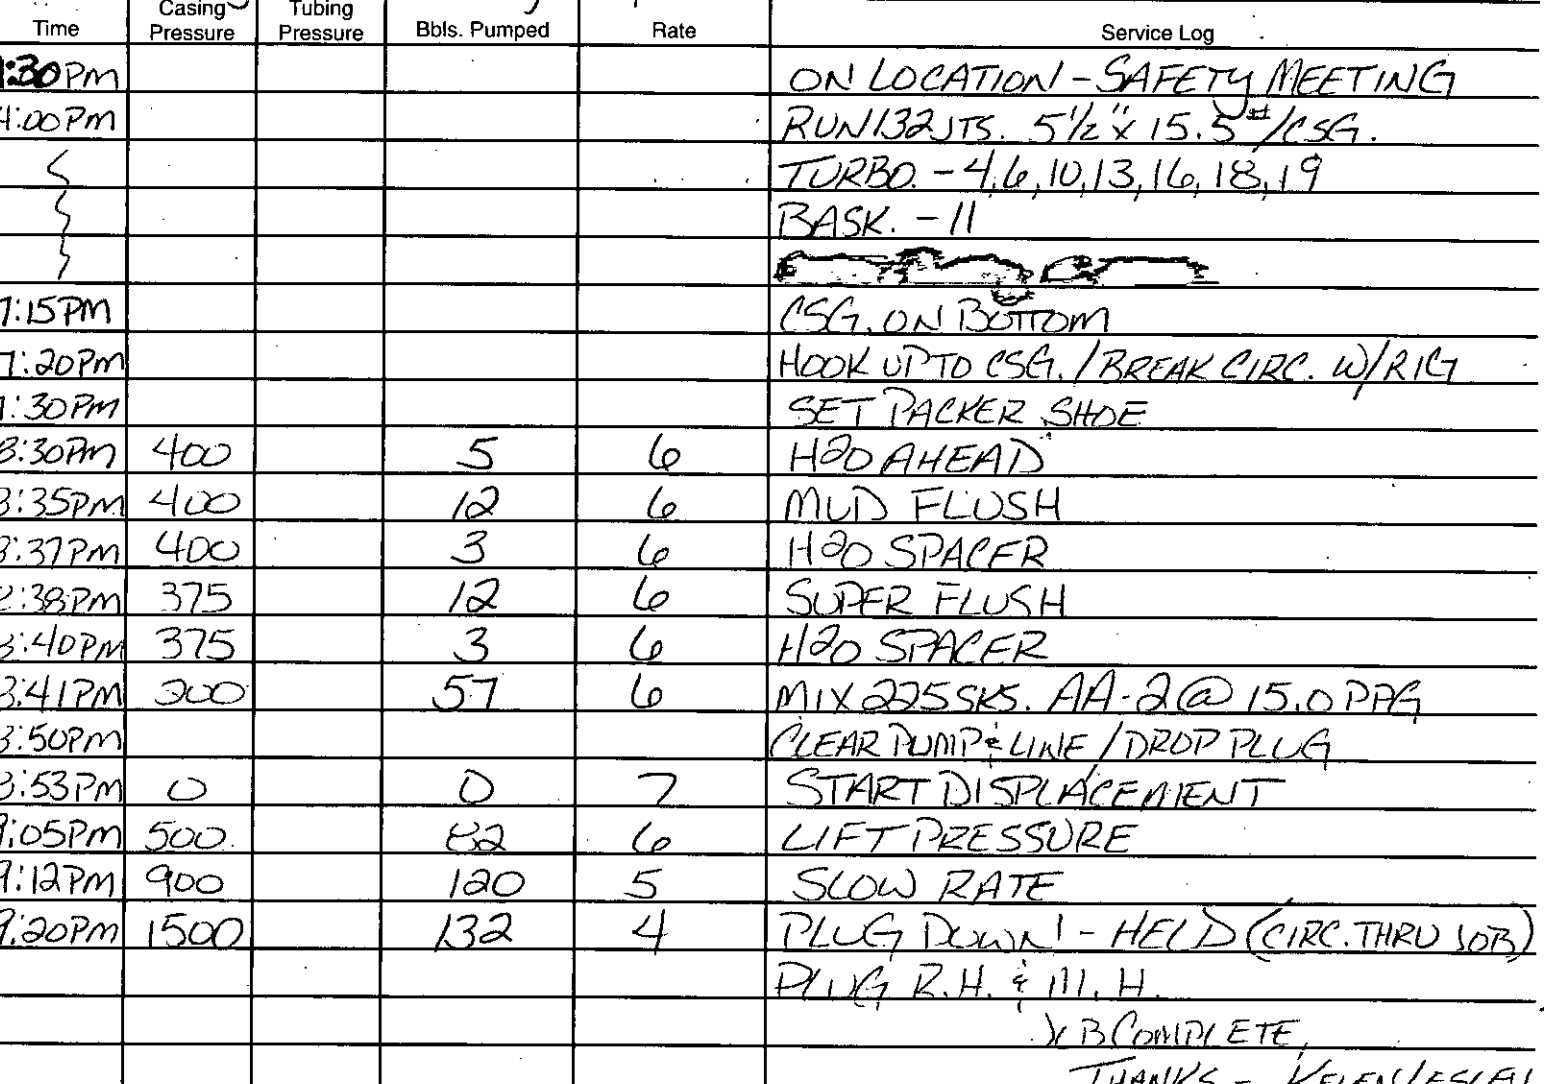 Time Casing Pressure Tubing Pressure Bbls. Pumped Rate Service Log
:30PM ON LOCATION - SAFETY MEETING
4:00PM RUN 132 JTS. 5½" x 15.5#/CSG.
TURBO. - 4,6,10,13,16,18,19
BASK. - 11
7:15PM CSG. ON BOTTOM
7:20PM HOOK UP TO CSG. / BREAK CIRC. W/RIG
:30PM SET PACKER SHOE
8:30PM 400 5 6 H2O AHEAD
8:35PM 400 12 6 MUD FLUSH
8:37PM 400 3 6 H2O SPACER
8:38PM 375 12 6 SUPER FLUSH
8:40PM 375 3 6 H2O SPACER
8:41PM 300 57 6 MIX 225 SKS. AA-2 @ 15.0 PPG
8:50PM CLEAR PUMP & LINE / DROP PLUG
8:53PM 0 0 7 START DISPLACEMENT
9:05PM 500 82 6 LIFT PRESSURE
9:12PM 900 120 5 SLOW RATE
9:20PM 1500 132 4 PLUG DOWN! - HELD (CIRC. THRU JOB)
PLUG R.H. & M.H.
JOB COMPLETE,
THANKS -